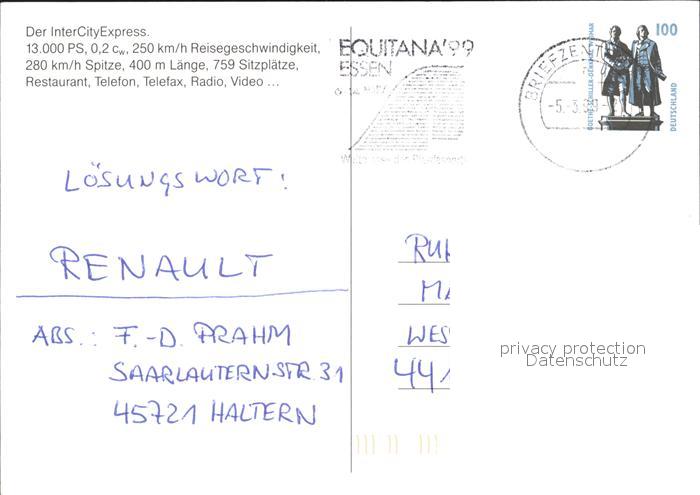 Der InterCityExpress.
13.000 PS, 0,2 cw, 250 km/h Reisegeschwindigkeit,
280 km/h Spitze, 400 m Länge, 759 Sitzplätze,
Restaurant, Telefon, Telefax, Radio, Video ...
EQUITANA'99
ESSEN
BRIEFZENT
-5.-3.99-
100
GOETHE-SCHILLER-DENKMAL WEIMAR
DEUTSCHLAND
LÖSUNGSWORT:
RENAULT
ABS.: F.-D. PRAHM
SAARLAUTERNSTR. 31
45721 HALTERN
RUH
MA
WES
441
privacy protection
Datenschutz